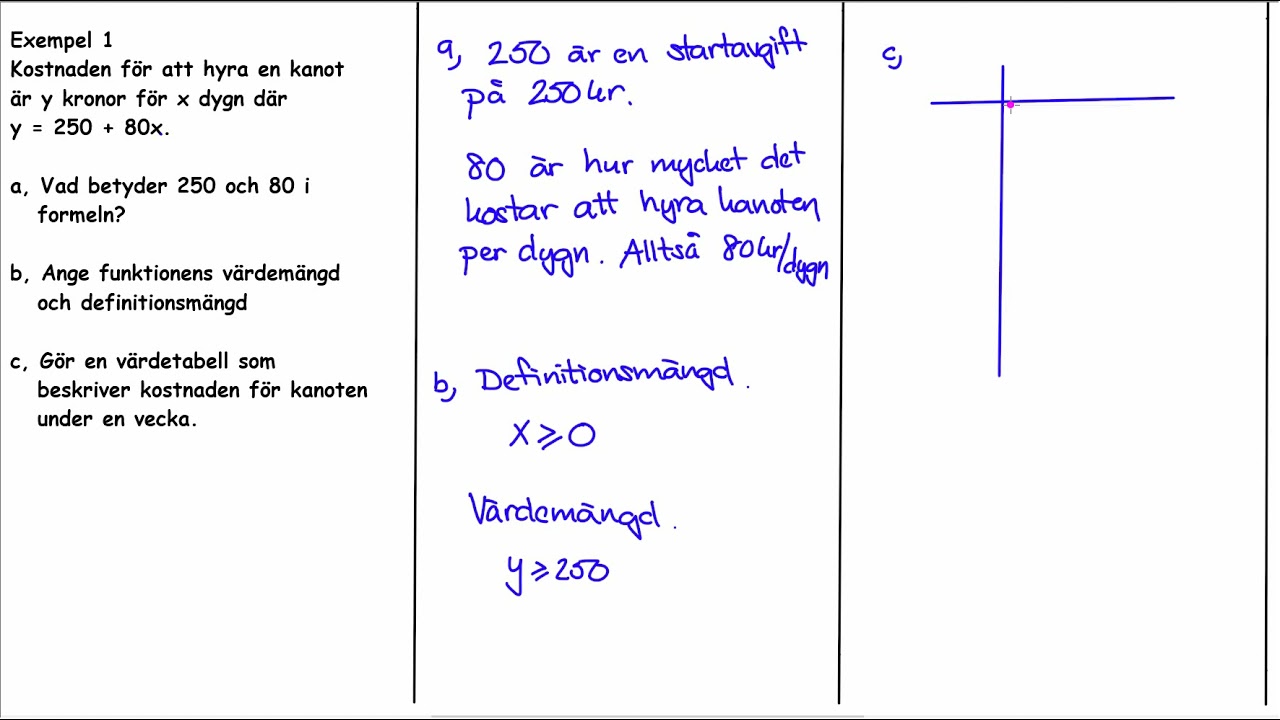 Exempel 1
Kostnaden för att hyra en kanot
är y kronor för x dygn där
y = 250 + 80x.
a, Vad betyder 250 och 80 i
formeln?
b, Ange funktionens värdemängd
och definitionsmängd
c, Gör en värdetabell som
beskriver kostnaden för kanoten
under en vecka.
a, 250 är en startavgift
på 250kr.
80 är hur mycket det
kostar att hyra kanoten
per dygn. Alltså 80kr/dygn
b, Definitionsmängd.
x ⩾ 0
Värdemängd.
y ⩾ 250
c,